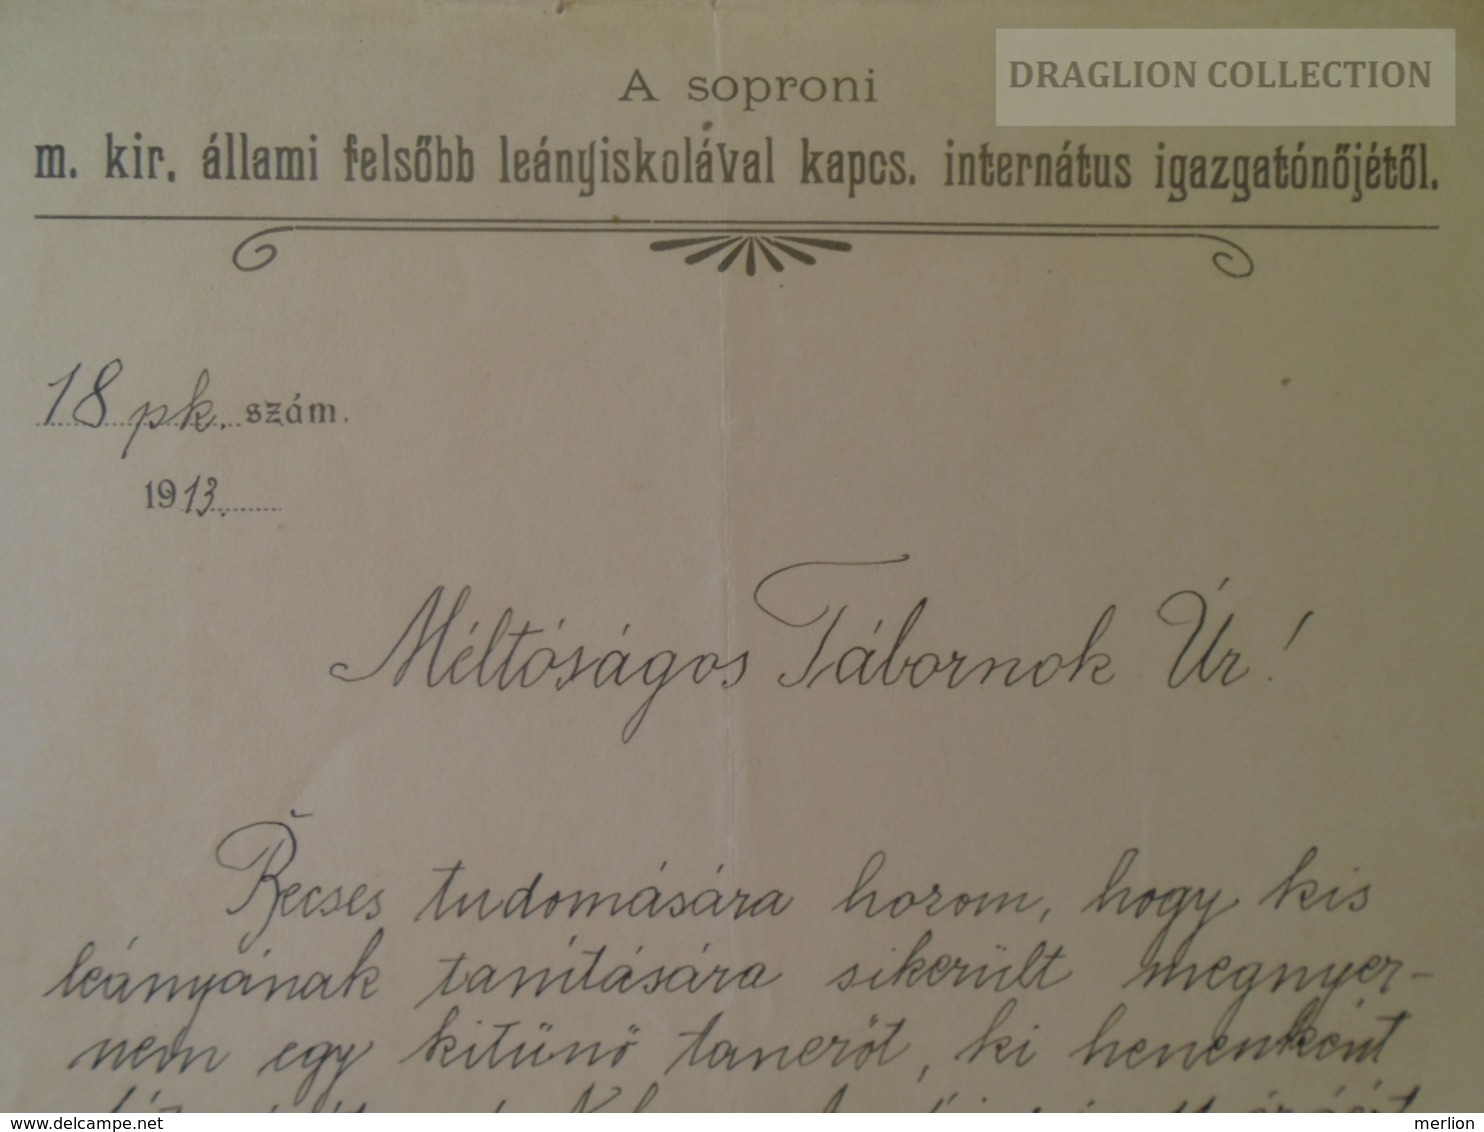 DRAGLION COLLECTION
A soproni
m. kir. állami felsőbb leányiskolával kapcs. internátus igazgatónőjétől.
18 pk. szám.
1913.
Méltóságos Tábornok Úr!
Becses tudomására hozom, hogy kis
leányának tanítására sikerült megnyer-
nem egy kitünő tanerőt, ki hetenként
www.delcampe.net
merlion